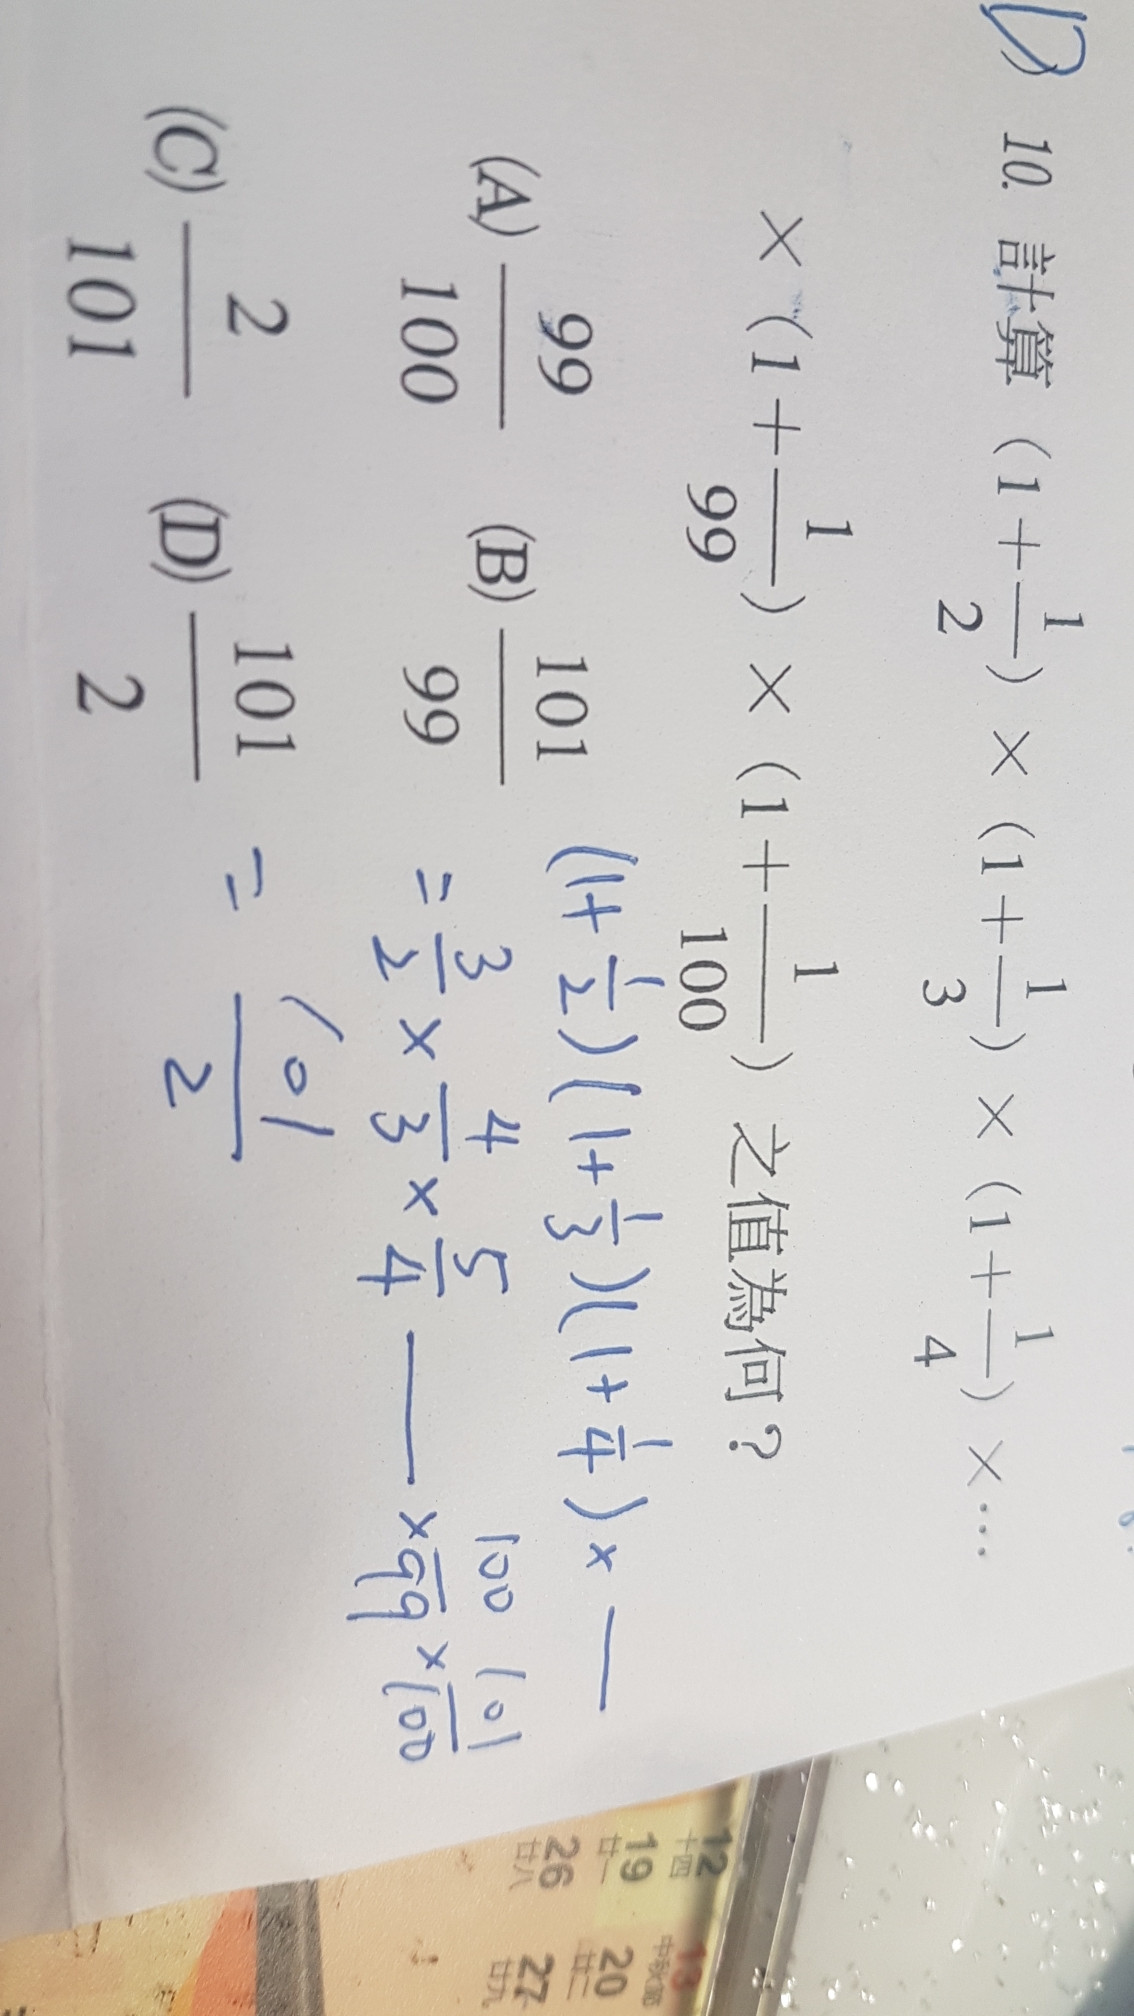 D 10. 計算 (1+1/2)×(1+1/3)×(1+1/4)×…
×(1+1/99)×(1+1/100) 之值為何?
(A) 99/100 (B) 101/99
(C) 2/101 (D) 101/2
(1+1/2)(1+1/3)(1+1/4)× —
= 3/2 × 4/3 × 5/4 — × 100/99 × 101/100
= 101/2
12 13
十四
19 20
廿一 廿二
26 27
廿八 廿九